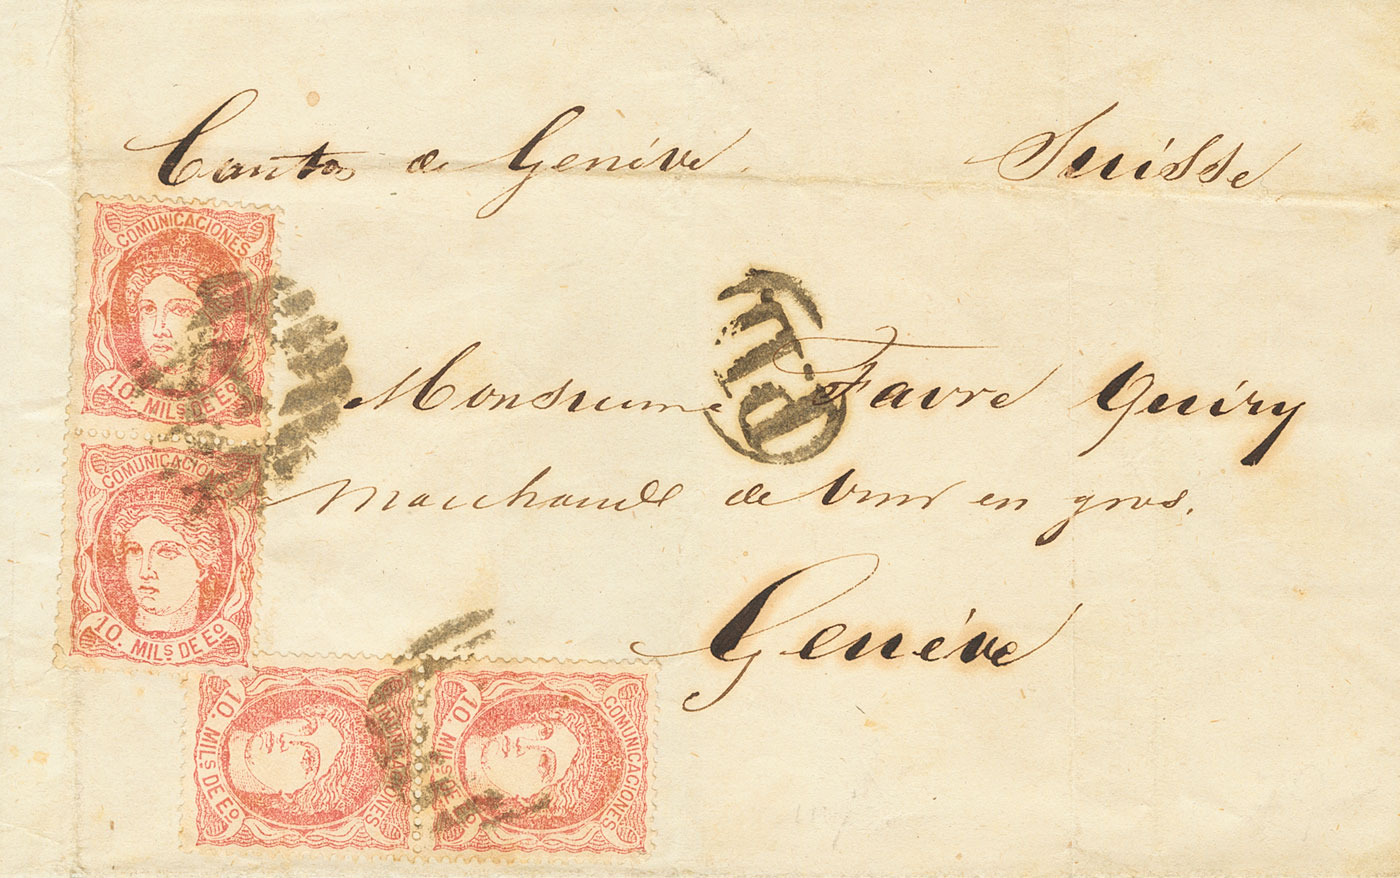 Canton de Genève Suisse
COMUNICACIONES
10. MILS. DE Eo.
P.D.
Favre Quiry
COMUNICACIONES
10. MILS. DE Eo.
Marchand de vins en gros.
Genéve
10. MILS. DE Eo.
COMUNICACIONES
10. MILS. DE Eo.
COMUNICACIONES